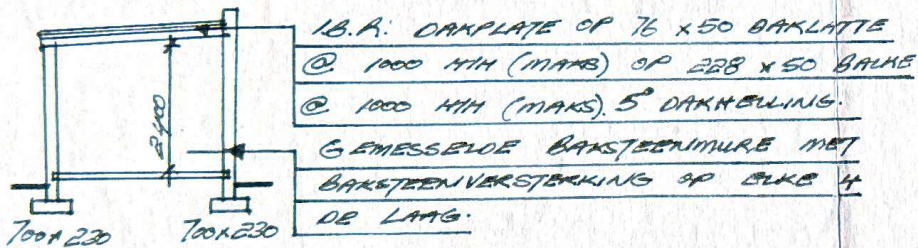 I.B.R. DAKPLATE OP 76 x 50 DAKLATTE
@ 1000 H/H (MAKS) OP 228 x 50 BALKE
@ 1000 H/H (MAKS). 5° DAKHELLING.
2400
GEMESSELDE BAKSTEENMURE MET
BAKSTEENVERSTERKING OP ELKE 4
DE LAAG.
700 x 230 700 x 230